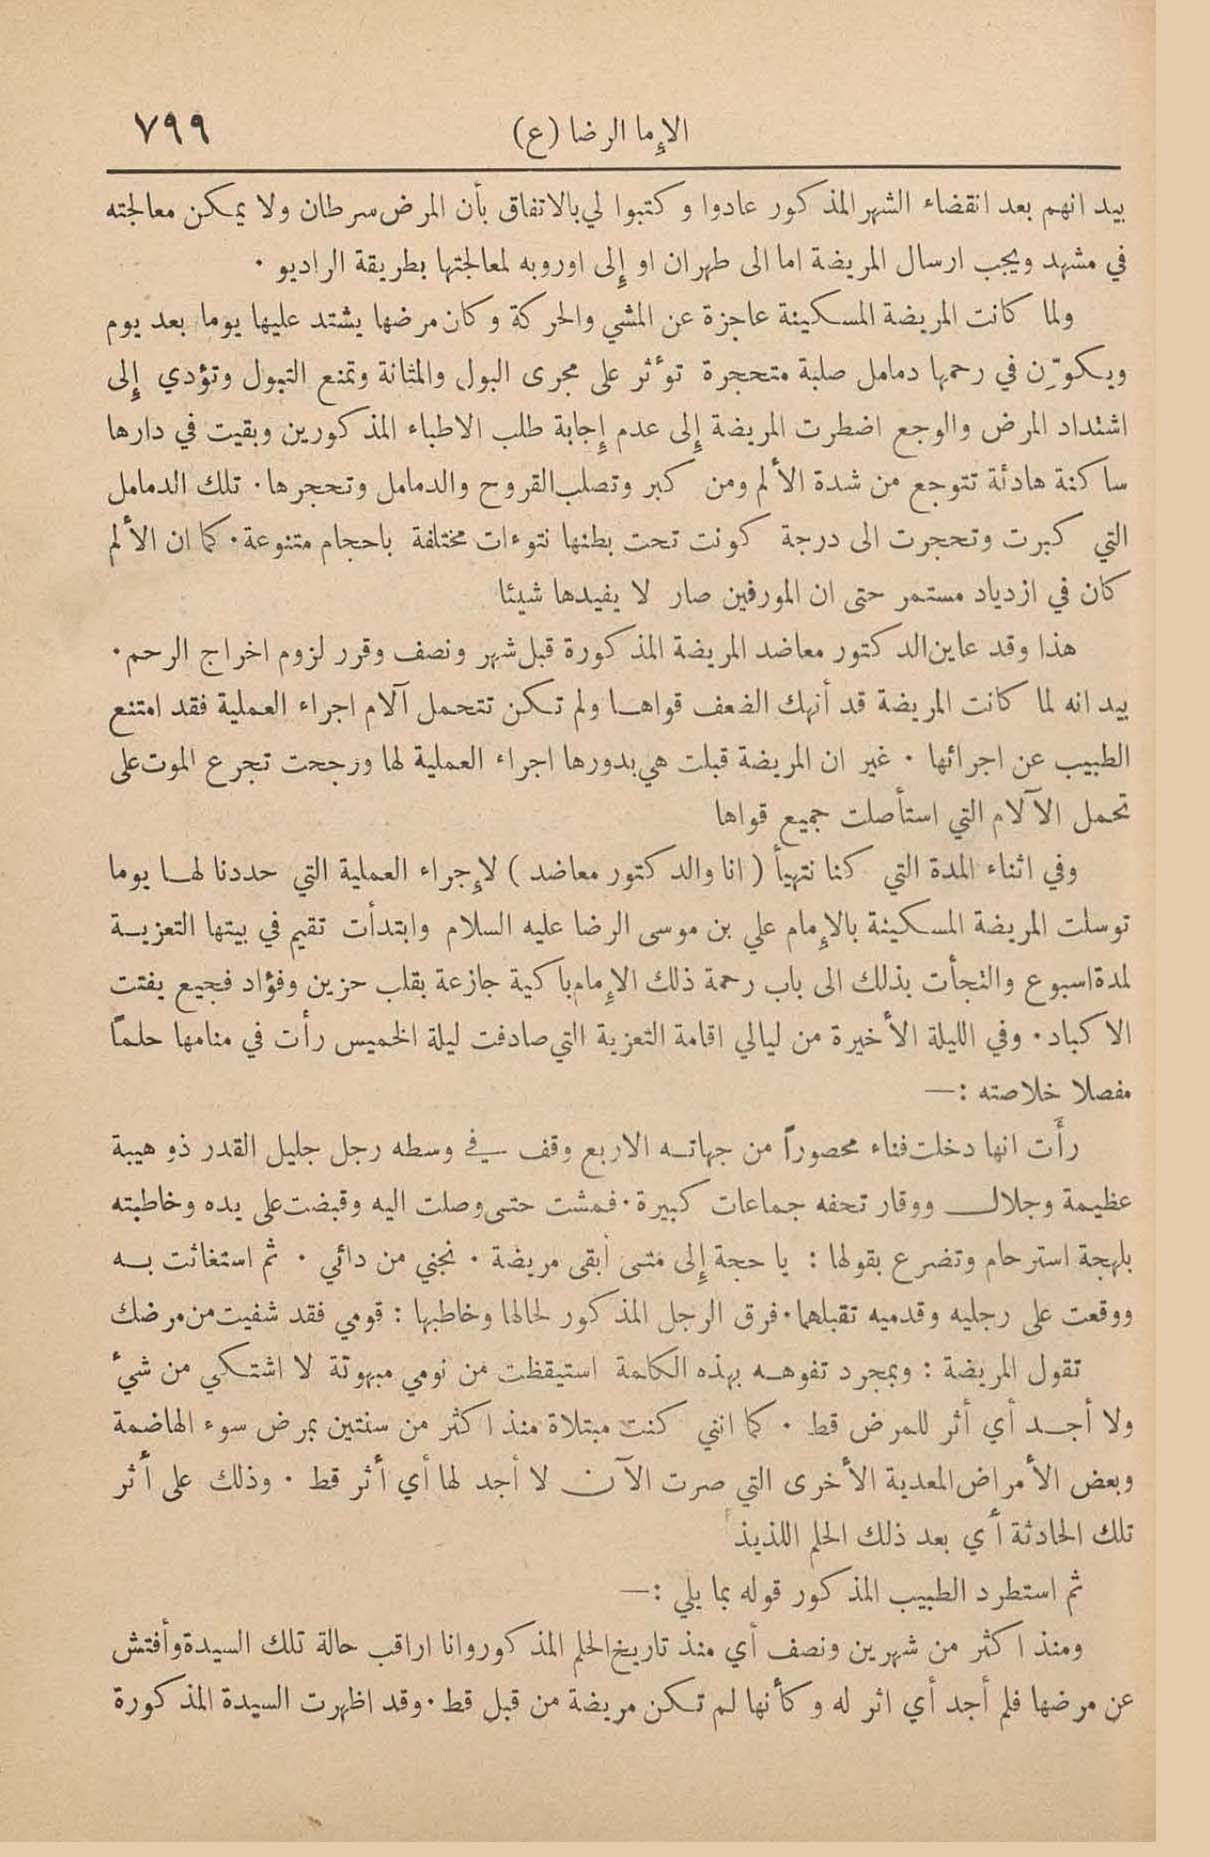 الإما الرضا (ع) ٧٩٩
بيد انهم بعد انقضاء الشهر المذكور عادوا وكتبوا لي بالاتفاق بأن المرض سرطان ولا يمكن معالجته
في مشهد ويجب ارسال المريضة اما الى طهران او إلى اوروبه لمعالجتها بطريقة الراديو .
ولما كانت المريضة المسكينة عاجزة عن المشي والحركة وكان مرضها يشتد عليها يوما بعد يوم
ويكوّن في رحمها دمامل صلبة متحجرة تؤثر على مجرى البول والمثانة وتمنع التبول وتؤدي إلى
اشتداد المرض والوجع اضطرت المريضة إلى عدم إجابة طلب الاطباء المذكورين وبقيت في دارها
ساكنة هادئة تتوجع من شدة الألم ومن كبر وتصلب القروح والدمامل وتحجرها . تلك الدمامل
التي كبرت وتحجرت الى درجة كونت تحت بطنها نتوءات مختلفة باحجام متنوعة . كما ان الألم
كان في ازدياد مستمر حتى ان المورفين صار لا يفيدها شيئا
هذا وقد عاين الدكتور معاضد المريضة المذكورة قبل شهر ونصف وقرر لزوم اخراج الرحم .
بيد انه لما كانت المريضة قد أنهك الضعف قواها ولم تكن تتحمل آلام اجراء العملية فقد امتنع
الطبيب عن اجرائها . غير ان المريضة قبلت هي بدورها اجراء العملية لها ورجحت تجرع الموت على
تحمل الآلام التي استأصلت جميع قواها
وفي اثناء المدة التي كنا نتهيأ ( انا والدكتور معاضد ) لإجراء العملية التي حددنا لها يوما
توسلت المريضة المسكينة بالإمام علي بن موسى الرضا عليه السلام وابتدأت تقيم في بيتها التعزية
لمدة اسبوع والتجأت بذلك الى باب رحمة ذلك الإمام باكية جازعة بقلب حزين وفؤاد فجيع يفتت
الاكباد . وفي الليلة الأخيرة من ليالي اقامة التعزية التي صادفت ليلة الخميس رأت في منامها حلماً
مفصلا خلاصته :—
رأت انها دخلت فناء محصوراً من جهاته الاربع وقف في وسطه رجل جليل القدر ذو هيبة
عظيمة وجلال ووقار تحفه جماعات كبيرة . فمشت حتى وصلت اليه وقبضت على يده وخاطبته
بلهجة استرحام وتضرع بقولها : يا حجة إلى متى أبقى مريضة . نجني من دائي . ثم استغاثت به
ووقعت على رجليه وقدميه تقبلهما . فرق الرجل المذكور لحالها وخاطبها : قومي فقد شفيت من مرضك
تقول المريضة : وبمجرد تفوهه بهذه الكلمة استيقظت من نومي مبهوتة لا اشتكي من شيء
ولا أجد أي أثر للمرض قط . كما انني كنت مبتلاة منذ اكثر من سنتين بمرض سوء الهاضمة
وبعض الأمراض المعدية الأخرى التي صرت الآن لا أجد لها أي أثر قط . وذلك على أثر
تلك الحادثة أي بعد ذلك الحلم اللذيذ
ثم استطرد الطبيب المذكور قوله بما يلي :—
ومنذ اكثر من شهرين ونصف أي منذ تاريخ الحلم المذكور وانا اراقب حالة تلك السيدة وأفتش
عن مرضها فلم أجد أي اثر له وكأنها لم تكن مريضة من قبل قط . وقد اظهرت السيدة المذكورة